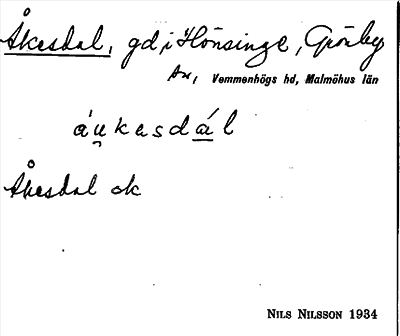 Åkesdal, gd i Hönsinge, Grönby
sn, Vemmenhögs hd, Malmöhus län
áu̯kasdál
Åkesdal ek
NILS NILSSON 1934